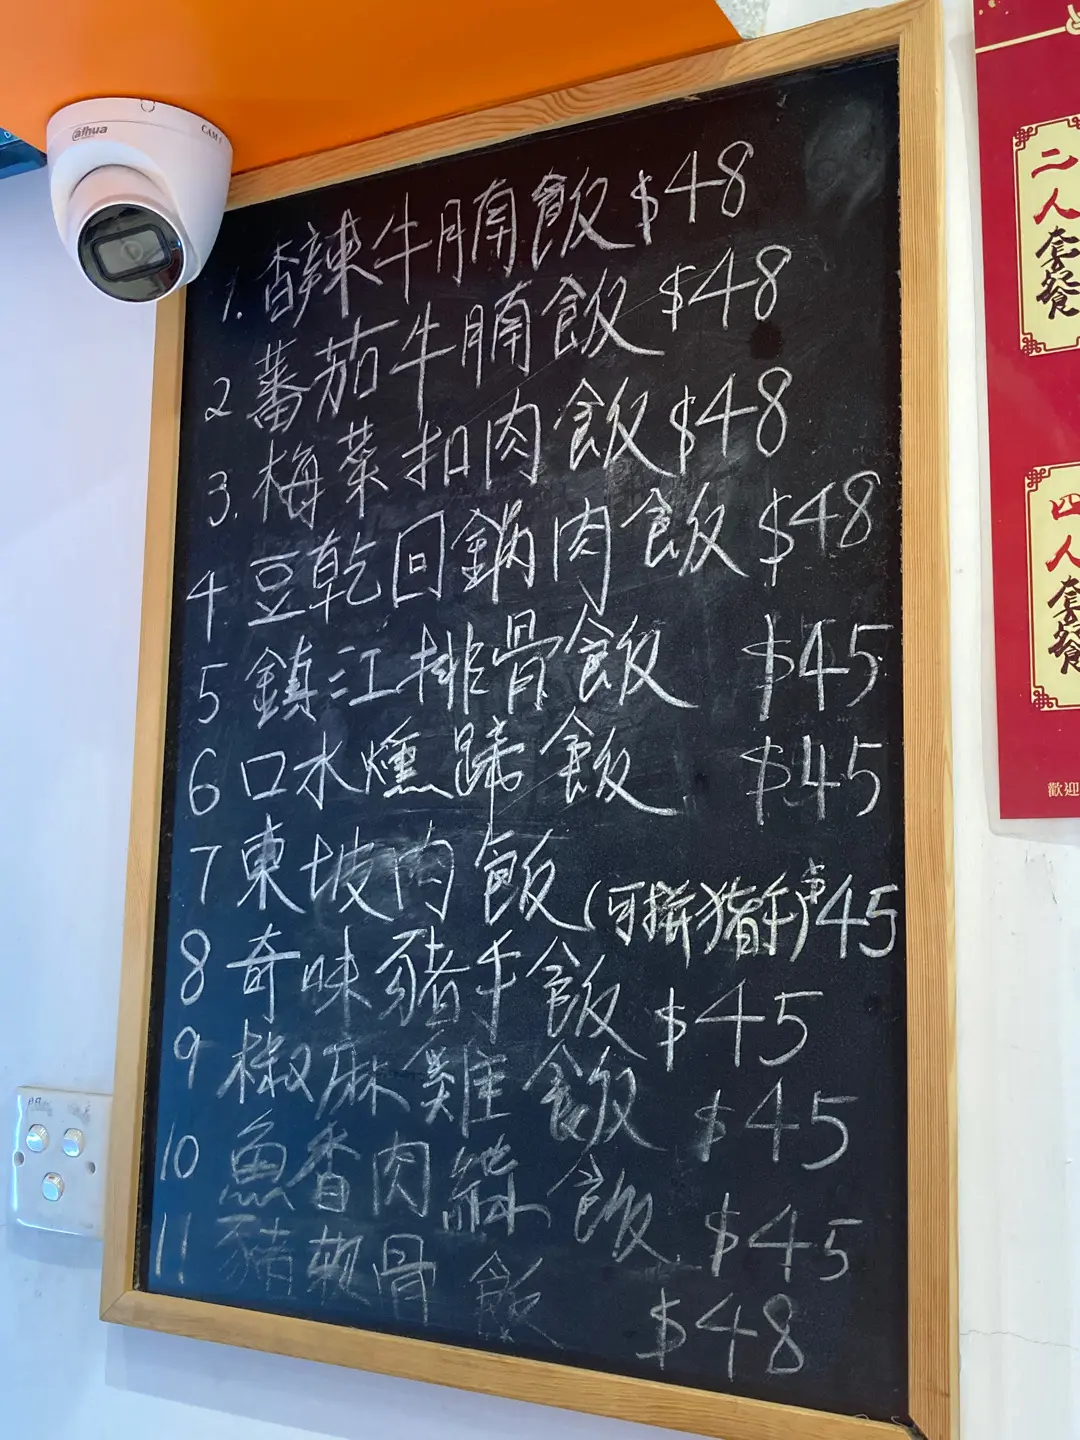 alhua
CAM
1. 香辣牛腩飯 $48
2 蕃茄牛腩飯 $48
3. 梅菜扣肉飯 $48
4 豆乾回鍋肉飯 $48
5 鎮江排骨飯 $45
6 口水燻蹄飯 $45
7 東坡肉飯 (可拼豬手) $45
8 奇味豬手飯 $45
9 椒麻雞飯 $45
10 魚香肉絲飯 $45
11 豬軟骨飯 $48
二人套餐
四人套餐
歡迎